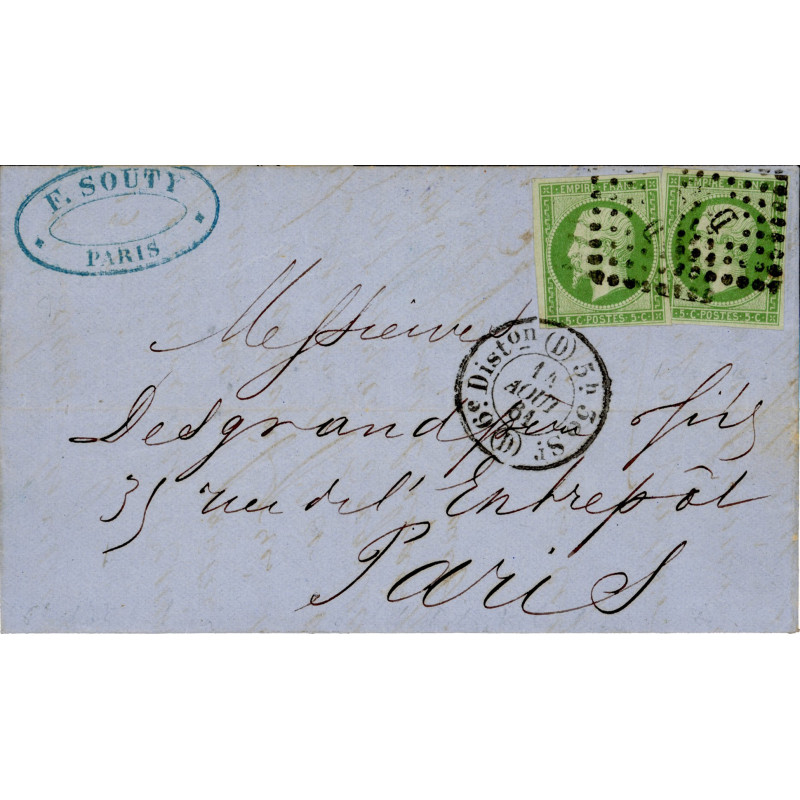 F. SOUTY
PARIS
EMPIRE FRANC
5 C POSTES 5 C
EMPIRE FR
5 C POSTES 5 C
D
D
(D) 6e Diston (D) 5h 5e Sr
11
AOUT
61
Messieurs
Desgrandpère fils
35 rue de l'Entrepôt
Paris